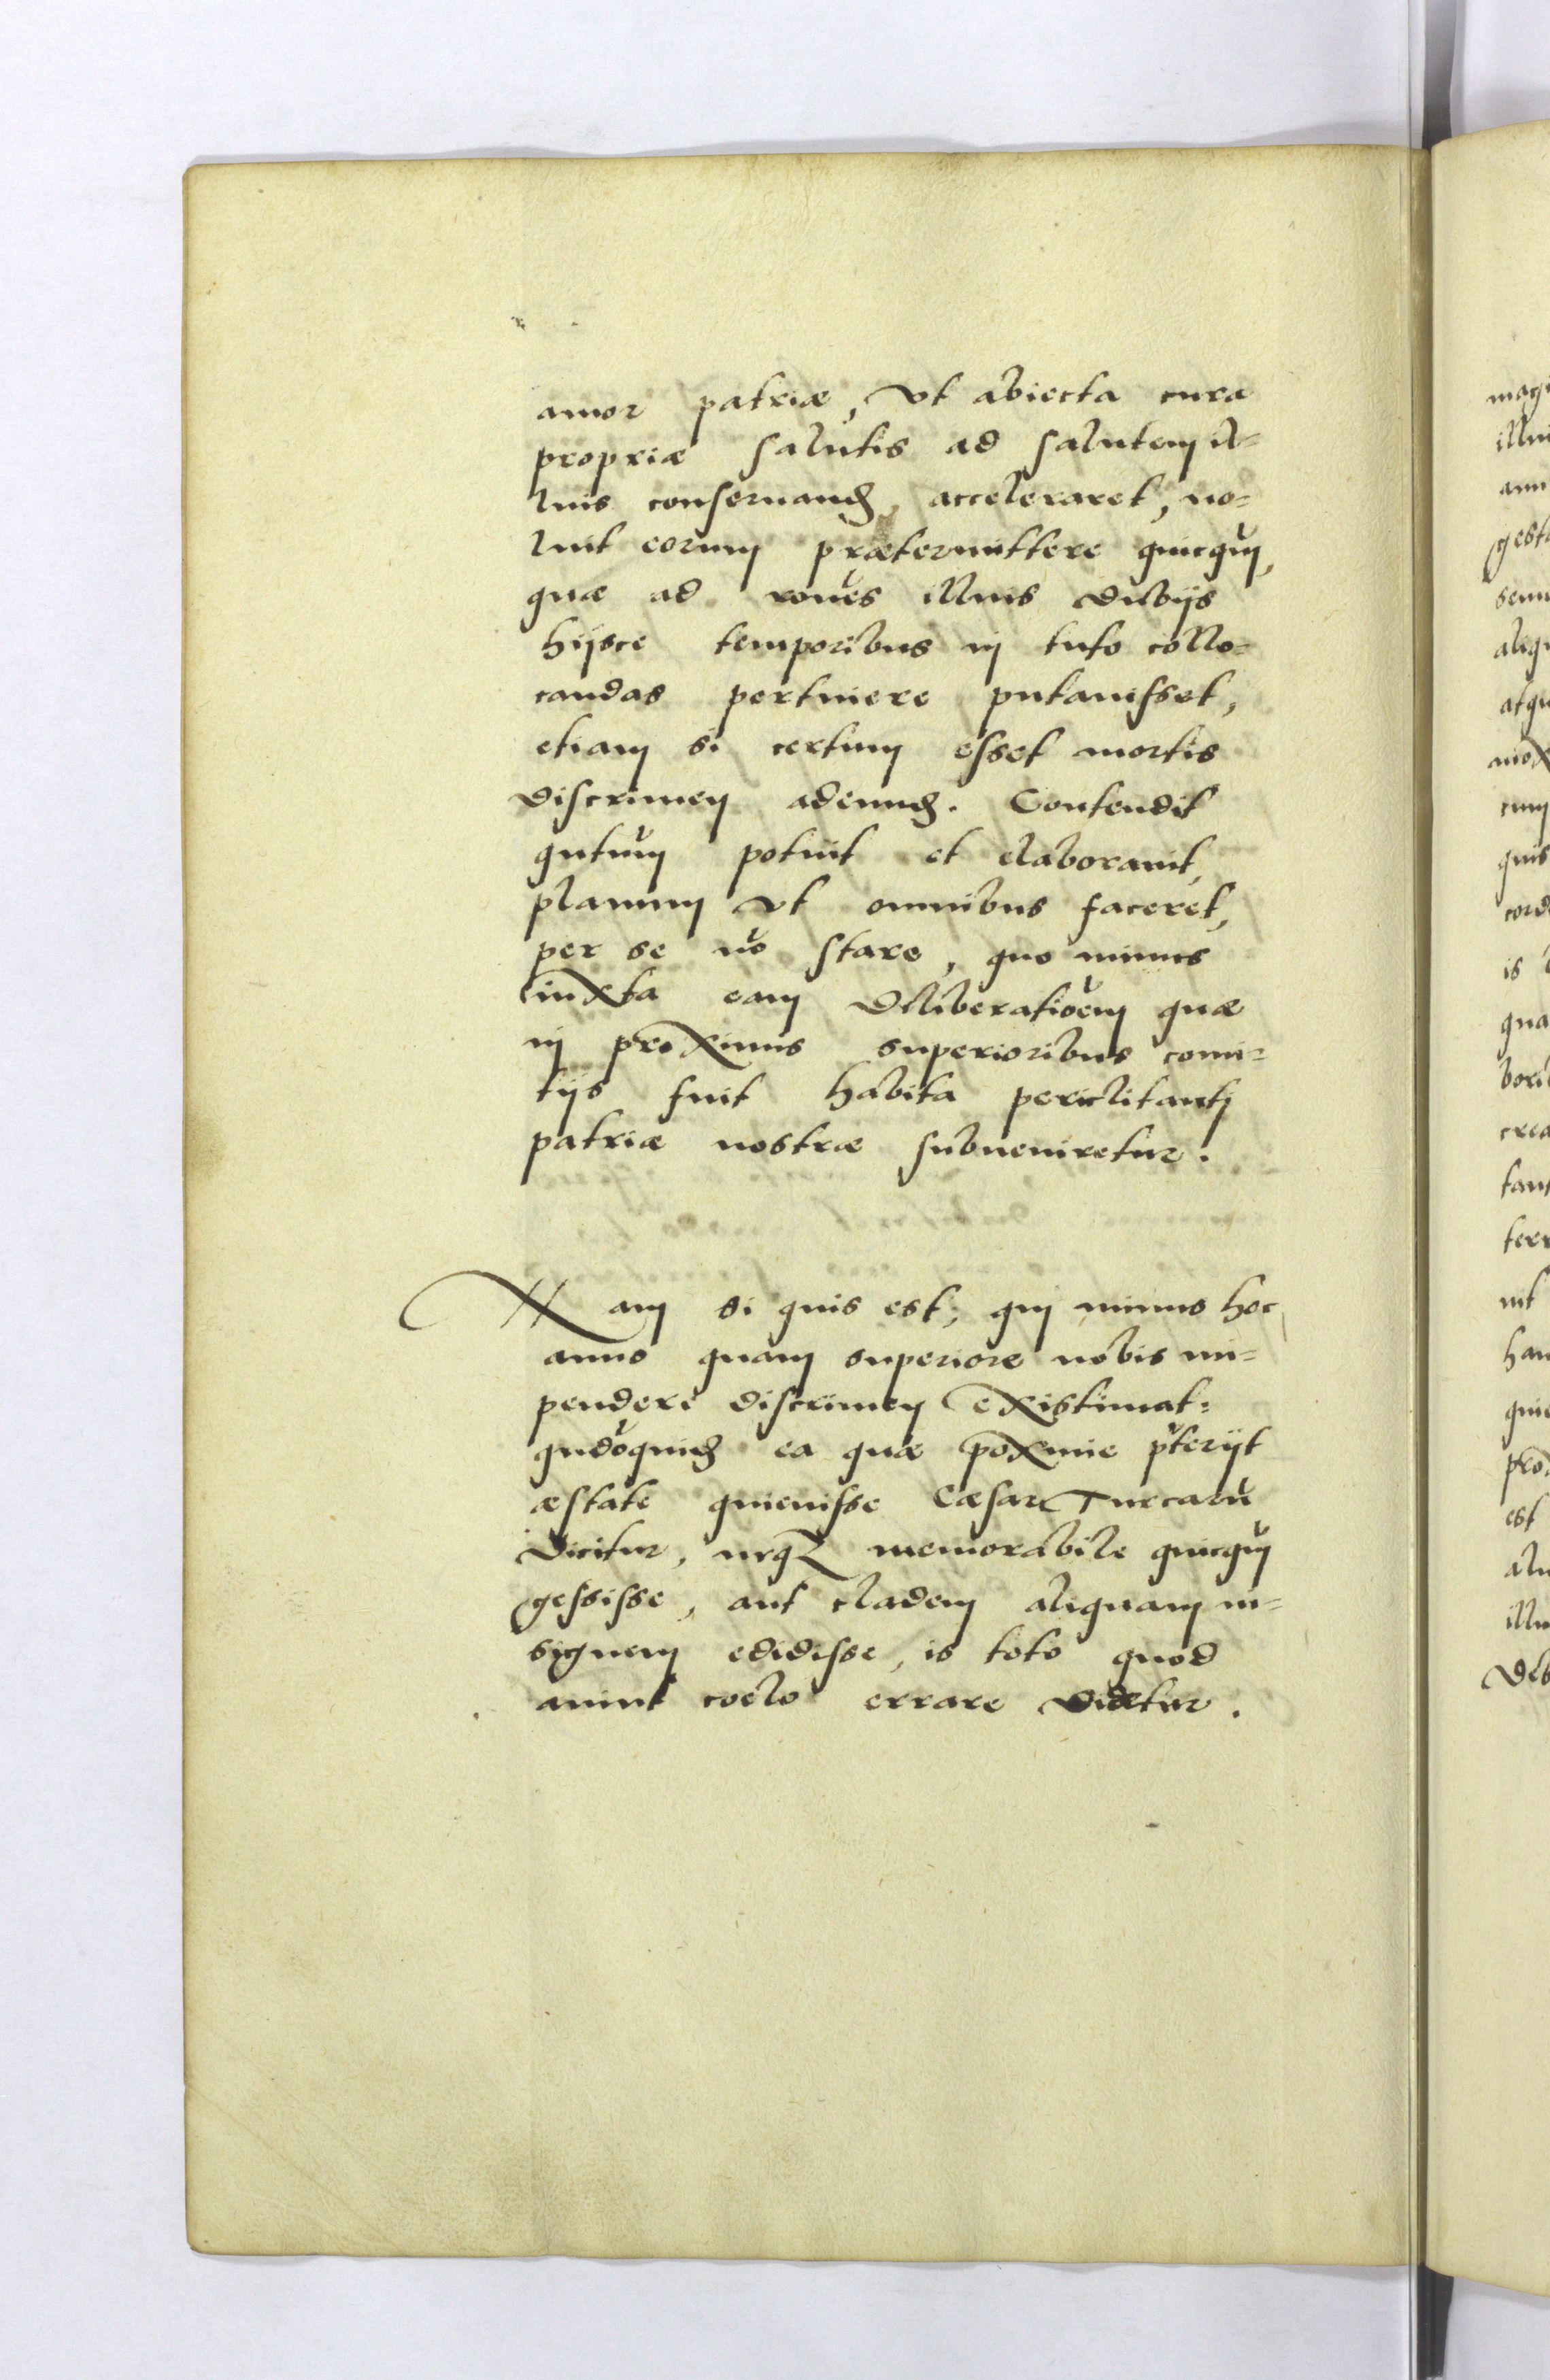 amor patriæ, vt abiecta cura
propriæ salutis ad salutem il-
lius conseruand, acceleraret, no-
luit eorum prætermittere quicqu̅,
quæ ad ro̅nes illius dubijs
hijsce temporibus in tuto collo-
candas pertinere putauisset,
etiam si certum esset mortis
discrimen adeund. Contendit
qu̅tum potuit et elaborauit,
planum vt omnibus faceret,
per se no̅ stare, quo minus
iuxta eam deliberatio̅em quæ
in proximis superioribus comi-
tijs fuit habita periclitanti
patriæ nostræ subueniretur.
Nam si quis est, qui minus hoc
anno quam superiore nobis im-
pendere discrimen existimat:
qu̅doquid ea quæ proxime p̅terijt
æstate quieuisse Cæsar Turcaru̅
dicitur, neq memorabile quicqu̅
gessisse, aut cladem aliquam in-
signem edidisse, is toto quod
aiunt coelo errare videtur.
magi
illu
ann
gesta
senu
aliq
atqu
mox
cum
quis
cord
is
qua
bori
crea
tant
terr
int
hau
quie
pro
est
aliu
illu
deb